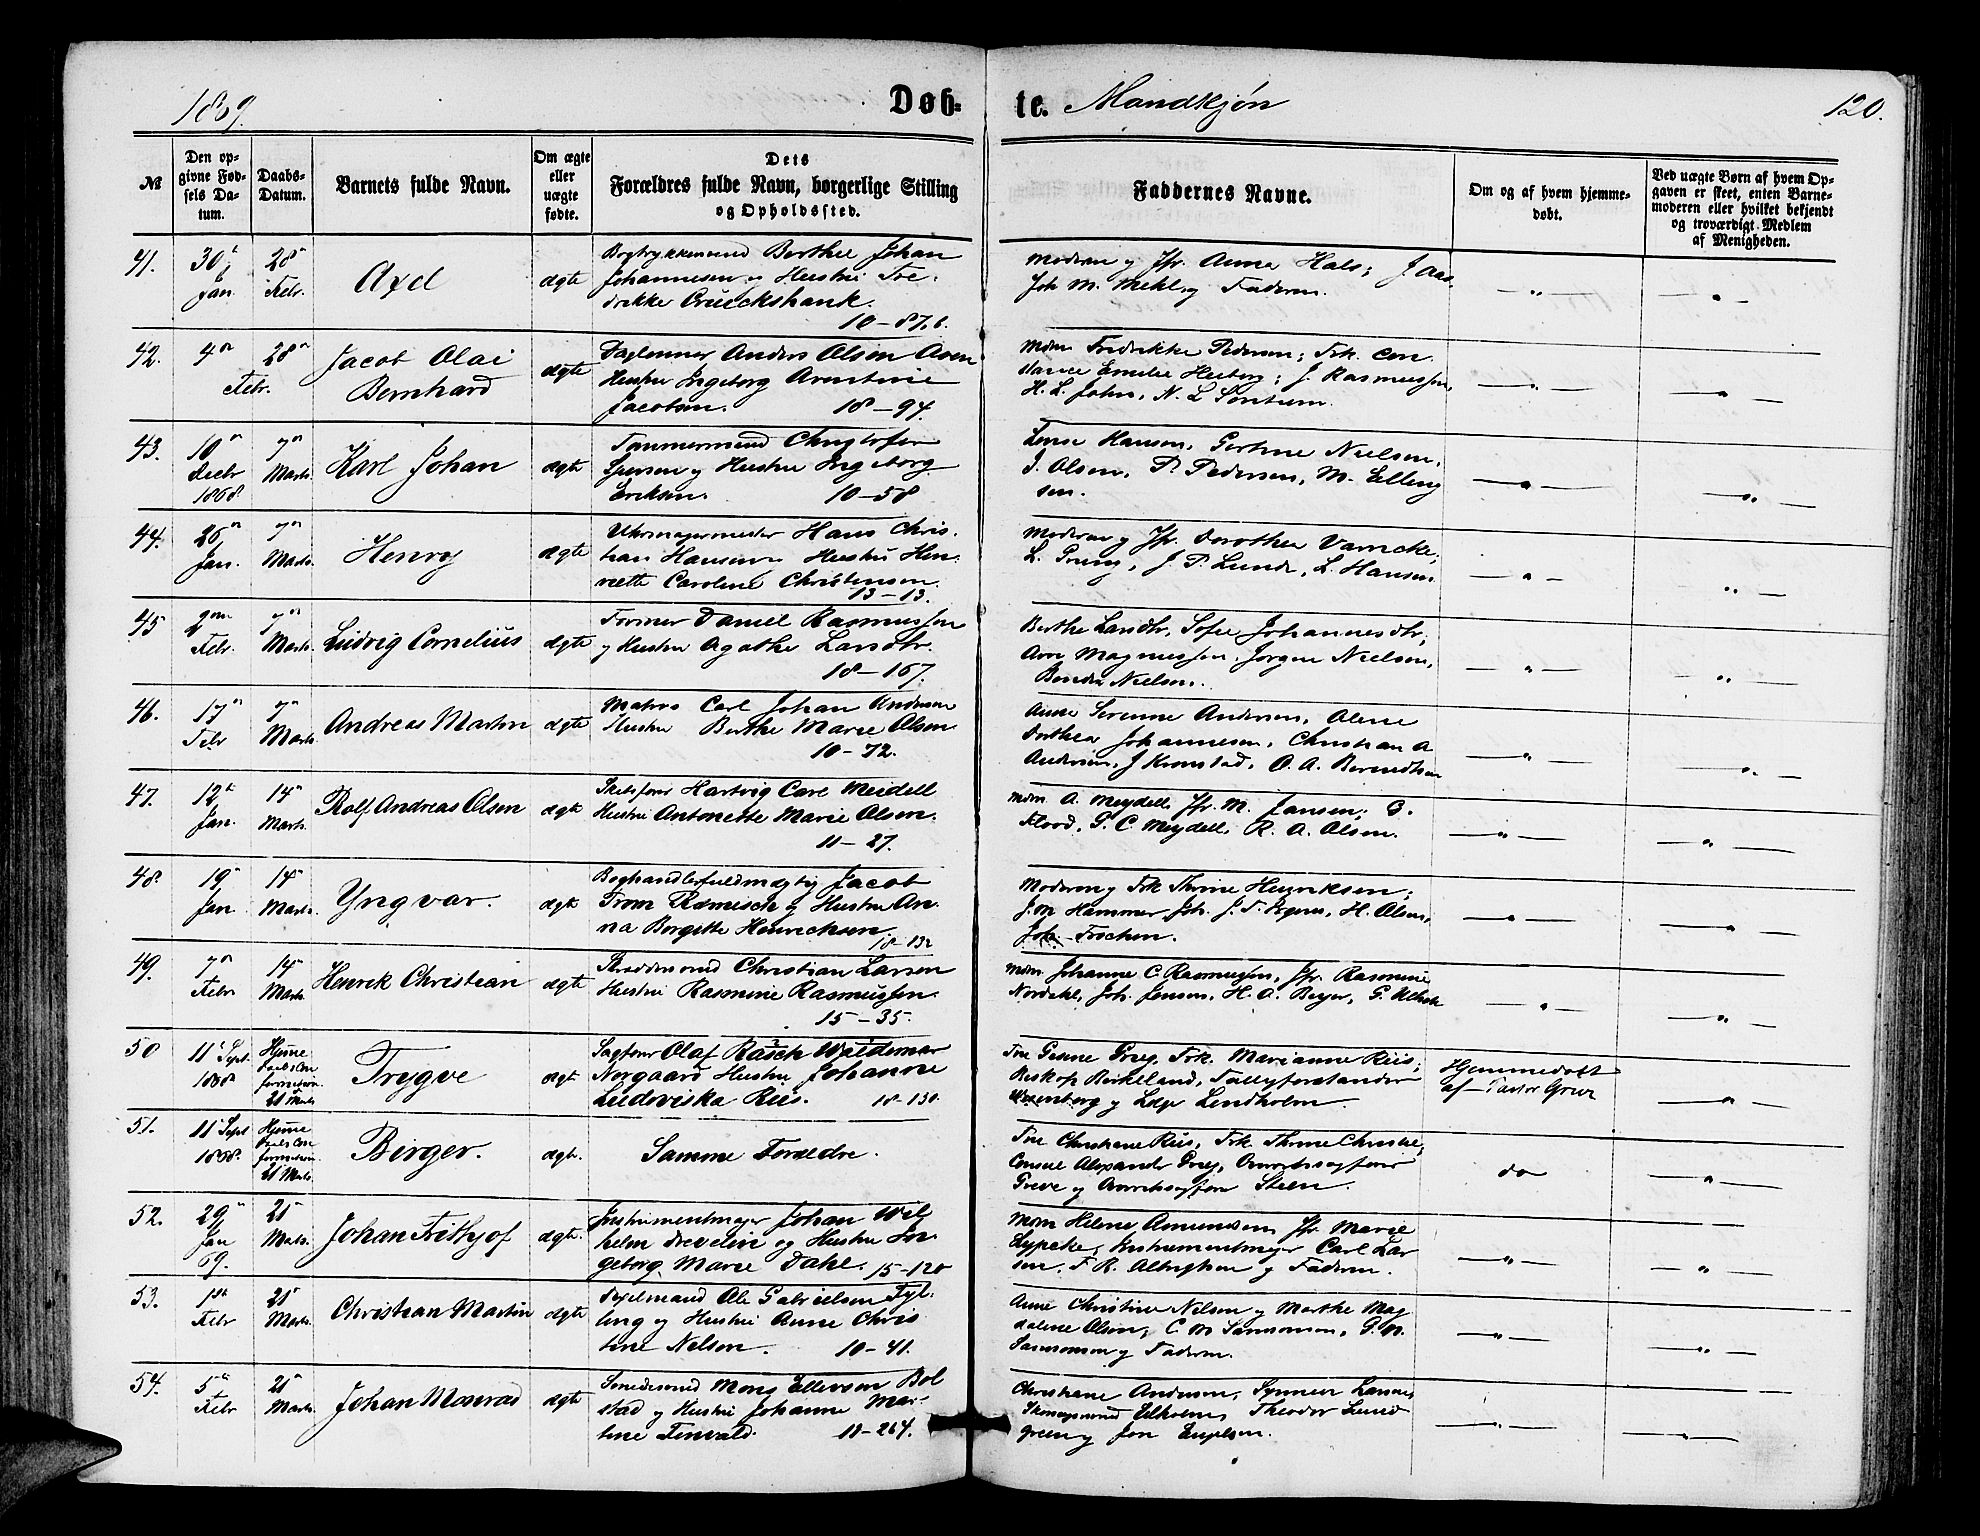 1869.
Døb-
te. Mandkjøn
120.
№
Den op-
givne Fød-
sels Da-
tum.
Daabs-
Datum.
Barnets fulde Navn.
Om ægte
eller
uægte
fødte.
Dets
Forældres fulde Navn, borgerlige Stilling
og Opholdssted.
Faddernes Navne.
Om og af hvem hjemme-
døbt.
Ved uægte Børn af hvem Op-
gaven er skeet, enten Barne-
moderen eller hvilket bekjendt
og troværdigt Medlem
af Menigheden.
41.
30
Jan.
28
Febr.
Axel
ægte
Bogtrykkersvend Berthel Johan
Johannesen og Hustru Fre-
drikke Cruickshank.
10-87.6.
Moderen og Jfr. Anna Hals; J Aas
Joh M. Mehl, og Faderen.
42.
4
28
Febr.
Jacob Olai
Bernhard
ægte
Daglønner Anders Olsen
Hustru Ingeborg
Jacobsen. 18-94.
Mdm Fredrikke Pedersen; Frk. Con-
stance Emilie Heiberg; J. Rasmussen,
H. L. John, N. L Sontum.
43.
10
Decbr
1868.
7
Marts.
Karl Johan
ægte
Tømmermand Christofer
Iversen og Hustru Ingeborg
Eriksen. 10-58
Hansen, Gertine Nielsen,
J. Olsen, P. Pedersen, M. Elling
sen.
44.
26
Jan.
7
Marts.
Henry
ægte
Uhrmagermester Hans Chris-
tian Hansen og Hustru Hen-
riette Caroline Christensen.
13-13.
Moderen og Jfr. Dorothea Varncke;
L. , J P. Lund, L. Hansen
45
2
Febr.
7
Marts.
Ludvig Cornelius
ægte
Former Daniel Rasmussen
og Hustru Agathe Larsdtr.
18-167.
Berthe Larsdtr, Sofie Johannesdtr,
Magnussen, Jørgen Nielsen,
Nielsen.
46.
17
Febr
7
Marts.
Andreas Martin
ægte
Matros Carl Johan Andersen
Hustru Berthe Marie Olsen
10-72.
Anne Serine Andersen, Olene
Dorthea Johannesen, Christian A
Andersen, J Kronstad, O. A. Berndtsen
47.
12
Jan.
14
Marts.
Rolf Andreas Olsen
ægte
Skibsfører Hartvig Carl Meidell
Hustru Antonette Marie Olsen.
11-27.
Mdm A. Meydell, Jfr. M. Jansen; C.
Flood, G. C. Meydell, R. A. Olsen.
48.
19
Jan
14
Marts.
Yngvar.
ægte
Boghandlerfuldmægtig Jacob
og Hustru An-
na Borgitte Henrichsen
18-132
Moderen og Frk Thrine Henriksen;
J. M Hammer , H. Olsen,
49.
7
Febr
14
Marts.
Henrik Christian
ægte
Skræddersvend Christian Larsen
Hustru Rasmine Rasmussen.
15-35.
Mdm. Johanne C. Rasmussen, Jfr. Rasmine
Nordahl, Joh. Jensen, H. A. Beyer,
50
11 Sept
1868.
Hjemme
daabs Con
firmation
21 Marts
Trygve
ægt
Sagfører Olaf Rasch Waldemar
Norgaard Hustru Johanne
Ludoviska Riis. 18-130.
Fru Gesine Grieg, Frk. Marianne Riis;
Biskop Birkeland, Toldforstander
og Læge Lindholm.
Hjemmedøbt
af Pastor
51.
11 Sept
1868.
Hjemme
daabs Con
firmation
21 Marts.
Birger.
ægte.
Samme Forældre.
Fru Christiane Riis, Frk. Thrine Christie;
Consul Alexander Grieg, Overretssagfører
Greve og Overretssagfører Steen.
do
52.
29
Jan
69.
21
Marts.
Johan Frithjof
ægte.
Instrumentmager Johan Wil
helm Drevelin og Hustru In-
geborg Marie Dahl. 15-120
Mdm Helene Amundsen, Jfr. Marie
Lypcke; Instrumentmager Carl Lar
sen, F. R. Albrigtsen og Faderen.
53.
1
Febr
21
Marts.
Christian Martin
ægte
Ole Gabrielsen Fyl-
ling og Hustru Anne Chris
tine Nelson. 10-41.
Anne Christine Nelson og Marthe Mag
dalene Olsen; C. M Samsonsen, G. M.
Samsonsen og Faderen.
54.
5
Febr
21
Marts.
Johan Monrad
ægte
Smedesvend Mons Ellevsen Bol
stad og Hustru Johanne Mar-
tine Finvald. 11-264.
Christiane Andersen, Synneve Larsen;
Theodor Lund
green og Jon